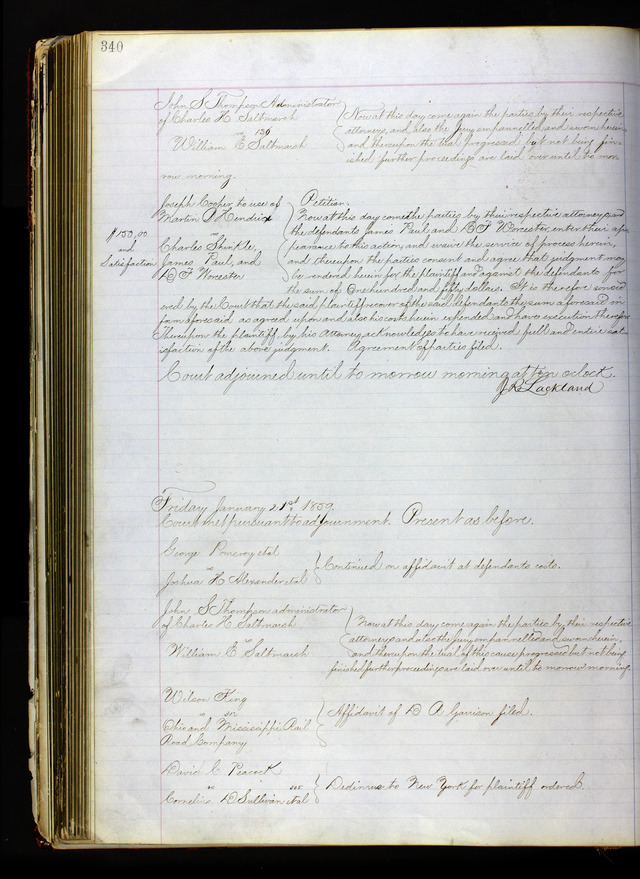 340
John S Thompson Administrator
of Charles H Saltmarsh
vs 136
William E Saltmarsh
Now at this day come again the parties by their respective
attorneys, and also the Jury empannelled and sworn herein
and thereupon the trial progressed but not being fin-
ished further proceedings are laid over until to mor
row morning.
Joseph Cooper to use of
Martin J Hendrix
vs
Charles Shinkle,
James Paul, and
B F Worcester
$150,00
and
Satisfaction
Petition.
Now at this day come the parties by their respective attorneys and
the defendants James Paul and B F Worcester enter their ap-
pearance to this action, and waive the service of process herein,
and thereupon the parties consent and agree that judgment may
be rendered herein for the plaintiff and against the defendants for
the sum of One hundred and fifty dollars. It is therefore consid
ered by the Court that the said plaintiff recover of the said defendants the sum aforesaid in
form aforesaid as agreed upon and also his costs herein expended and have execution therefor
Thereupon the plaintiff by his Attorney acknowledges to have received full and entire sat-
isfaction of the above judgment. Agreement of parties filed.
Court adjourned until to morrow morning at ten oclock.
J R Lackland
Friday January 21st 1859.
Court met pursuant to adjournment. Present as before.
George Pomeroy etal
vs
Joshua H Alexander etal
Continued on affidavit at defendants costs.
John S Thompson administrator
of Charles H Saltmarsh
vs
William E Saltmarsh
Now at this day come again the parties by their respective
attorneys and also the Jury empannelled and sworn herein,
and thereupon the trial of this cause progressed but not being
finished further proceedings are laid over until to morrow morning
Wilson King
vs
Ohio and Mississippi Rail
Road Company
Affidavit of D A Garrison filed.
David C Peacock
vs
Cornelius D Sullivan etal
Dedimus to New York for plaintiff ordered.